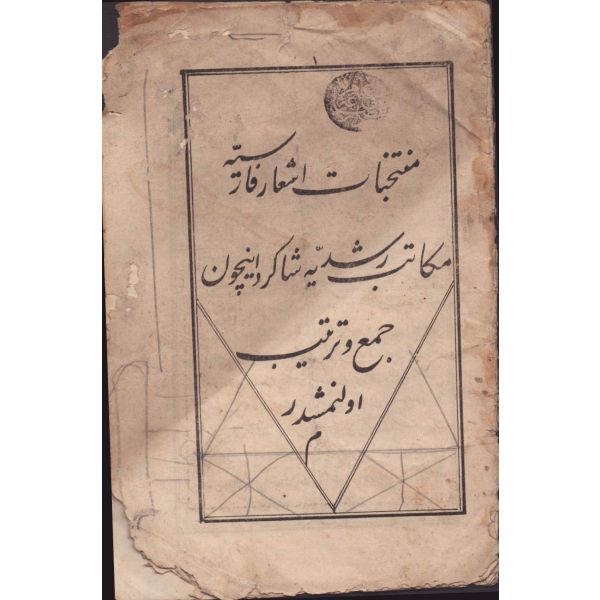 منتخبات اشعار فارسیه
مكاتب رشدیه شاكردانیچون
جمع و ترتیب
اولنمشدر
م